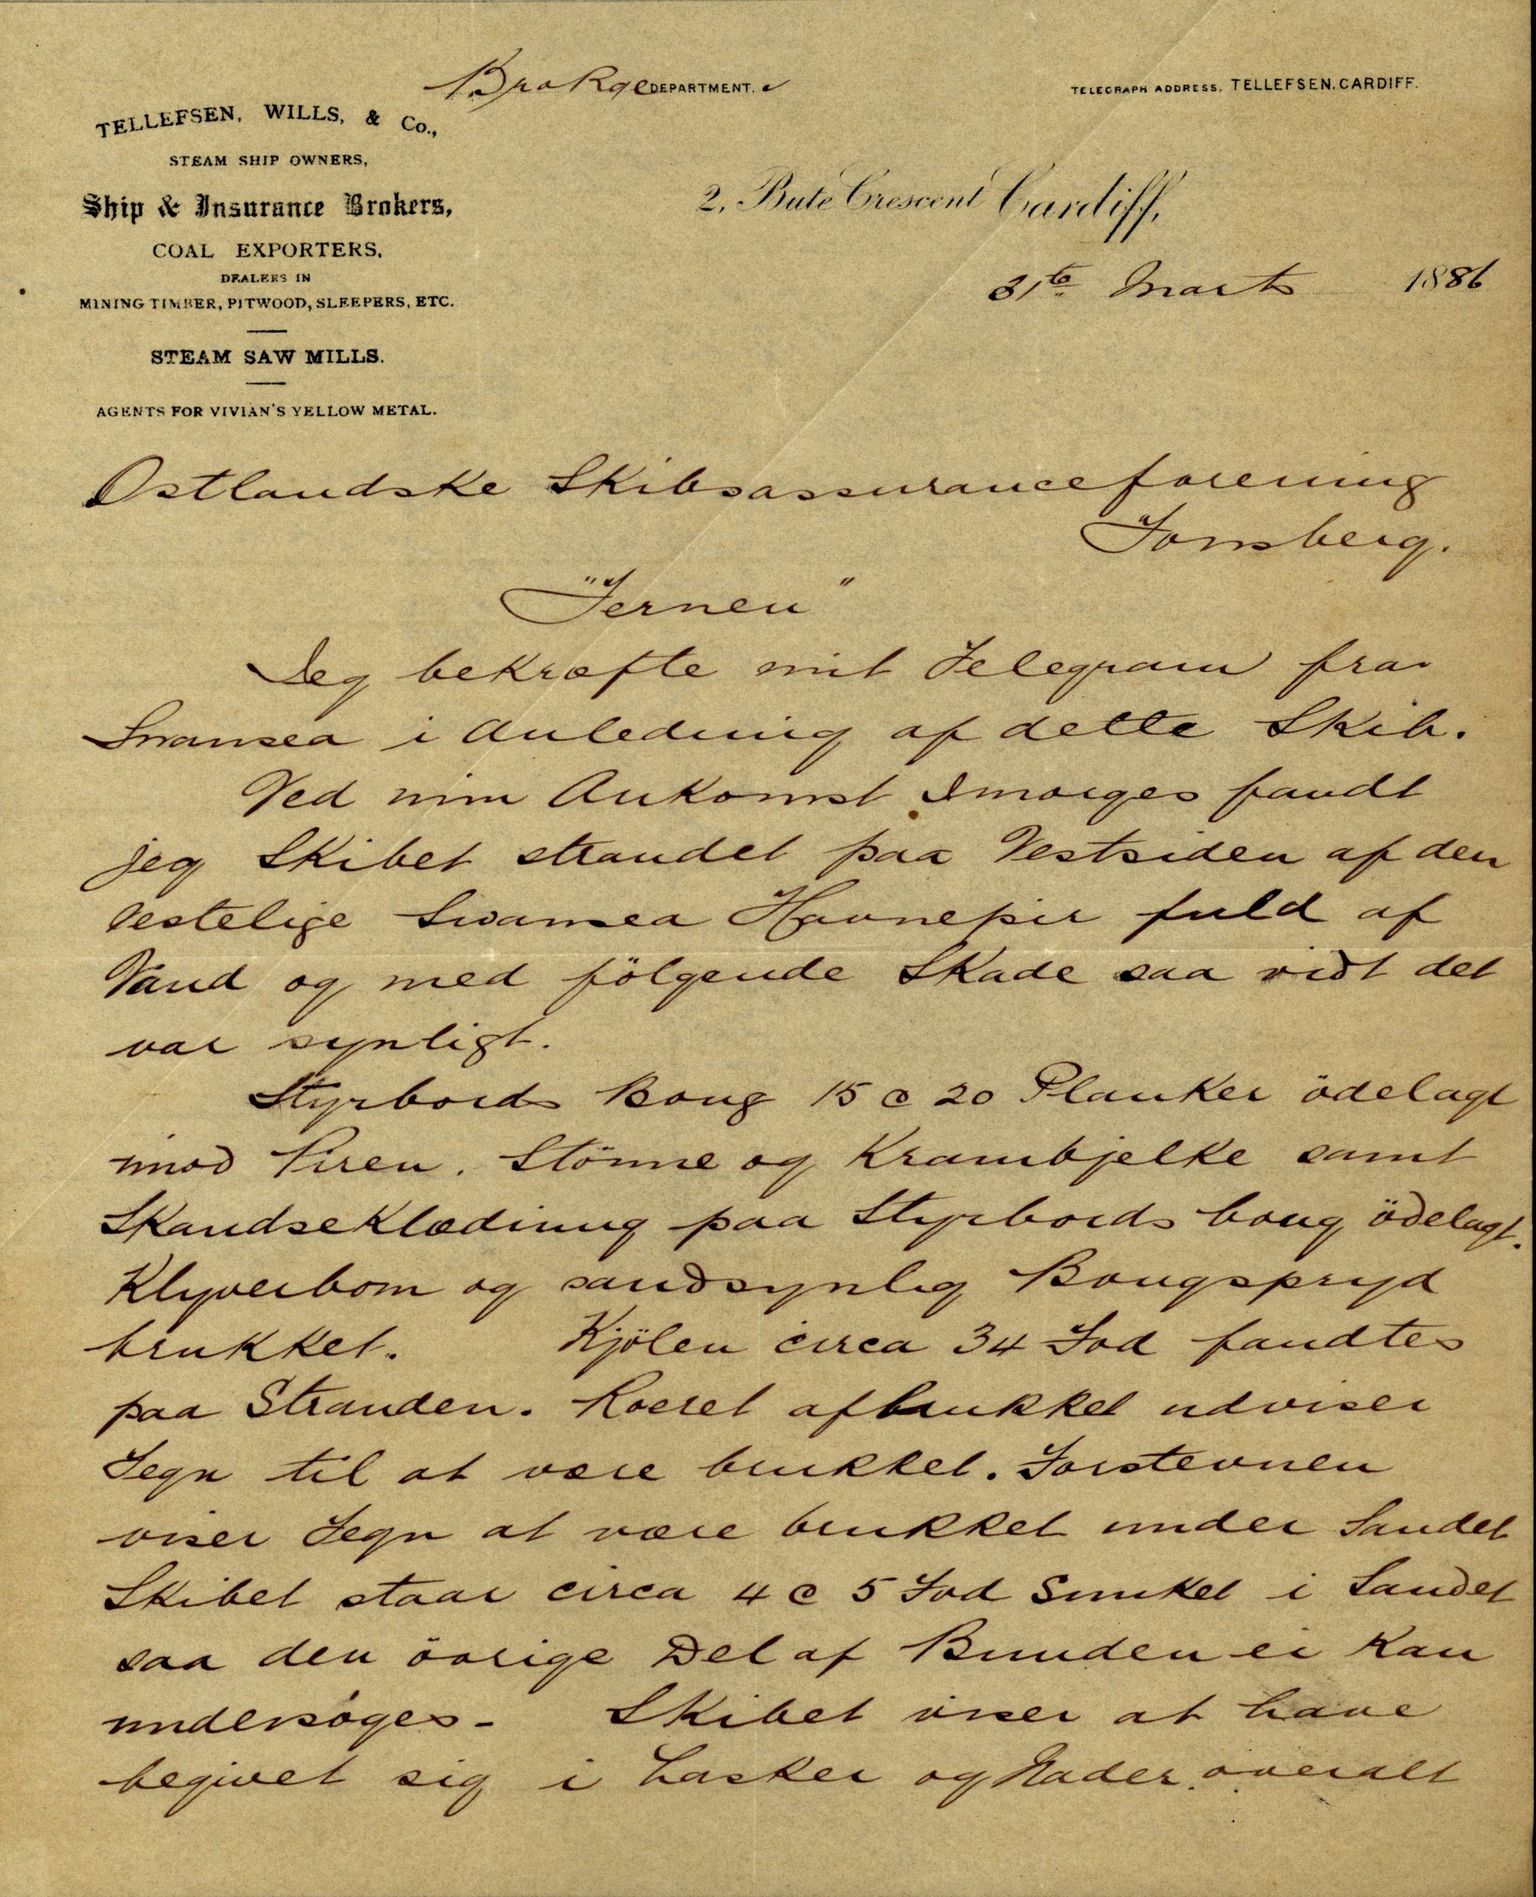 Brokge DEPARTMENT.
TELEGRAPH ADDRESS, TELLEFSEN. CARDIFF.
TELLEFSEN, WILLS, & Co.,
STEAM SHIP OWNERS,
Ship & Insurance Brokers,
COAL EXPORTERS,
DEALERS IN
MINING TIMBER, PITWOOD, SLEEPERS, ETC.
STEAM SAW MILLS.
AGENTS FOR VIVIAN'S YELLOW METAL.
2, Bute Crescent Cardiff,
31te Marts 1886
Ostlandske Skibsassuranceforening
Tønsberg.
"Ternen"
Jeg bekræfte mit Telegram fra
Swansea i Anledning af dette Skib.
Ved min Ankomst Imorges fandt
jeg Skibet strandet paa Vestsiden af den
Vestelige Swansea Havnepir fuld af
Vand og med fölgende Skade saa vidt det
var synligt.
Styrbords Boug 15 @ 20 Planker ödelagt
imod Piren. Stönne og Krambjelke samt
Skandseklædning paa Styrbords boug ödelagt.
Klyverbom og sandsynlig Bougspryd
brukket. Kjölen circa 34 Fod fandtes
paa Stranden. Roeret afbrukket udviser
Tegn til at være brukket. Forstevnen
viser Tegn at være brukket under Sandet
Skibet staar circa 4 @ 5 Fod Sunket i Sandet
saa den övrige Del af Bunden ei kan
undersöges - Skibet viser at have
begivet sig i Lasker og Nader overalt